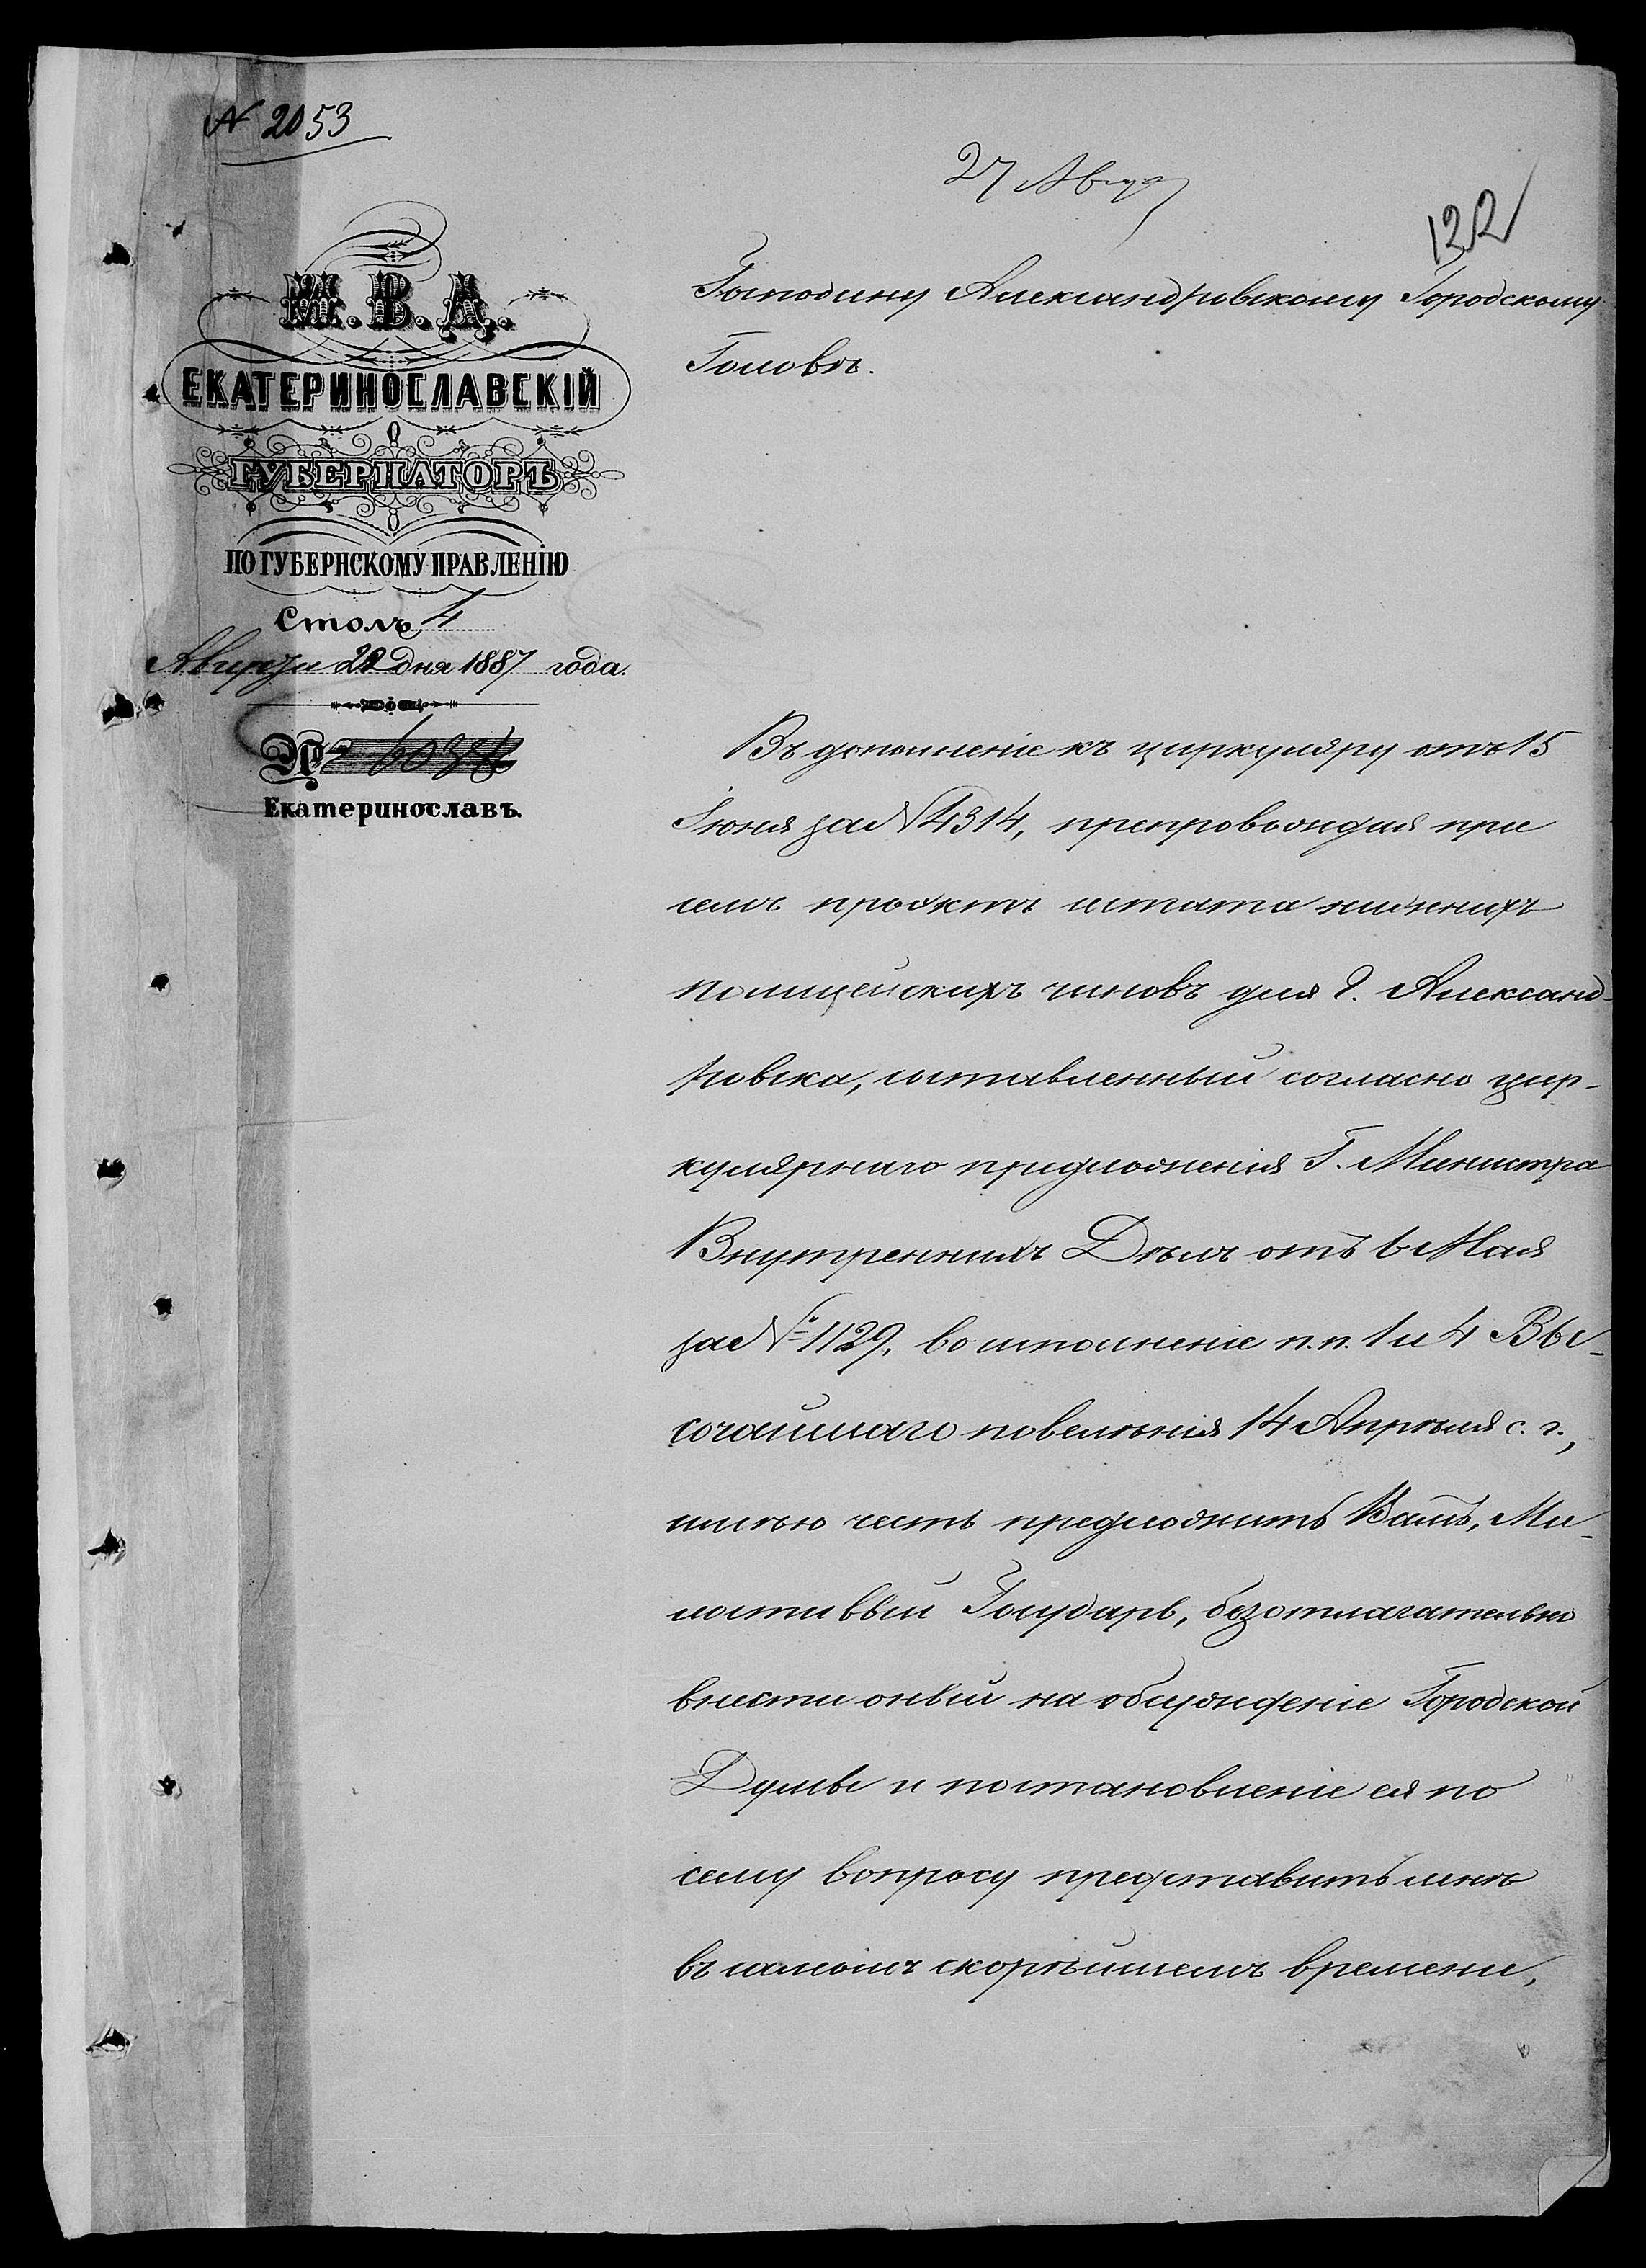 № 2053
27 Авгус
122
М. В. Д.
ЕКАТЕРИНОСЛАВСКІЙ
ГУБЕРНАТОРЪ
ПО ГУБЕРНСКОМУ ПРАВЛЕНІЮ
Столъ 4
Августа 22 дня 1887 года.
№
Екатеринославъ.
Господину Александровскому Городскому
Головѣ.
Въ дополненіе къ циркуляру отъ 15
Іюня за № 4314, препровождая при
семъ проэктъ штата нижнихъ
полицейскихъ чиновъ для г. Александ-
ровска, составленный согласно цир-
кулярнаго предложенія Г. Министра
Внутреннихъ Дѣлъ отъ 6 Мая
за № 1129, во исполненіе п.п. 1 и 4 Вы-
сочайшаго повелѣнія 14 Апрѣля с. г.,
имѣю честь предложить Вамъ, Ми-
лостивый Государь, безотлагательно
внести оный на обсужденіе Городской
Думы и постановленіе ея по
сему вопросу представить мнѣ
въ самомъ скорѣйшемъ времени,